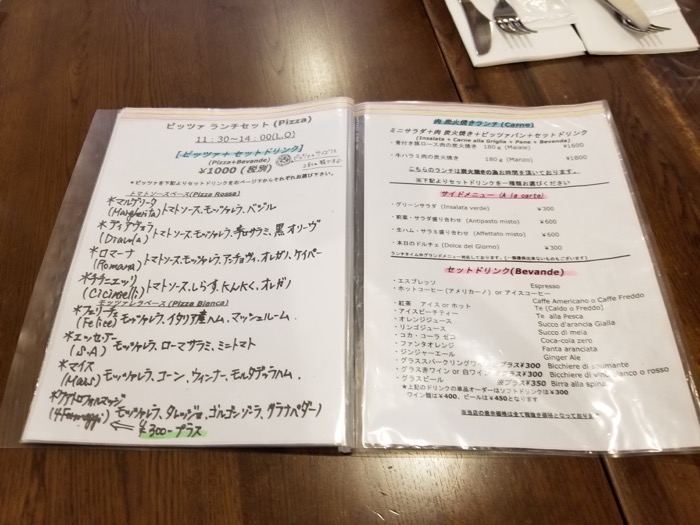 ピッツァ ランチセット (Pizza)
11：30〜14：00(L.O)
[ピッツァ + セットドリンク]
(Pizza+Bevande)
¥1000 (税別)
*ピッツァを下記よりセットドリンクを右ページ下からそれぞれお選び下さい。
トマトソースベース(Pizza Rossa)
*マルゲリータ
(Margherita) トマトソース、モッツァレラ、バジル
*ディアヴォラ
トマトソース、モッツァレラ、辛口サラミ、黒オリーヴ
*ロマーナ
(Romana) トマトソース、モッツァレラ、アンチョヴィ、オレガノ、ケイパー
*チチニエッリ
トマトソース、しらす、にんにく、オレガノ
モッツァレラベース(Pizza Bianca)
*フェリーチェ
(Felice) モッツァレラ、イタリア産ハム、マッシュルーム
*エッセ.アー
(S.A) モッツァレラ、ローマサラミ、ミニトマト
*マイス
(Mais) モッツァレラ、コーン、ウィンナー、モルタデッラハム
*クアトロフォルマッジ
モッツァレラ、タレッジョ、ゴルゴンゾーラ、グラナパダーノ
¥300-プラス
肉 炭火焼きランチ (Carne)
ミニサラダ+肉 炭火焼き+ピッツァパン+セットドリンク
(Insalata + Carne alla Griglia + Pane + Bevande)
・骨付き豚ロース肉の炭火焼き 180ｇ(Maiale) ¥1600
・牛ハラミ肉の炭火焼き 180ｇ(Manzo) ¥1800
こちらのランチは炭火焼きの為お時間を頂いております。
※下記よりセットドリンクを一種類お選びください
サイドメニュー (A la carte)
・グリーンサラダ (Insalata verde) ¥300
・前菜・サラダ盛り合わせ (Antipasto misto) ¥600
・生ハム・サラミ盛り合わせ (Affettato misto) ¥600
・本日のドルチェ (Dolce del Giorno) ¥300
セットドリンク(Bevande)
・エスプレッソ Espresso
・ホットコーヒー(アメリカーノ) or アイスコーヒー Caffe Americano o Caffe Freddo
・紅茶 アイス or ホット Te (Caldo o Freddo)
・アイスピーチティー Te alla Pesca
・オレンジジュース Succo d'arancia Gialla
・リンゴジュース Succo di mela
・コカ・コーラ ゼロ Coca-cola zero
・ファンタオレンジ Fanta aranciata
・ジンジャーエール Ginger Ale
・グラススパークリングワイン プラス¥300 Bicchiere di spumante
・グラス赤ワイン or 白ワイン プラス¥300 Bicchiere di vino bianco o rosso
・グラスビール プラス¥350 Birra alla spina
★上記のドリンクの単品オーダーはソフトドリンクは¥300
ワイン類は¥400、ビールは¥450となります
※当店の表示価格は全て税抜き価格となっております。